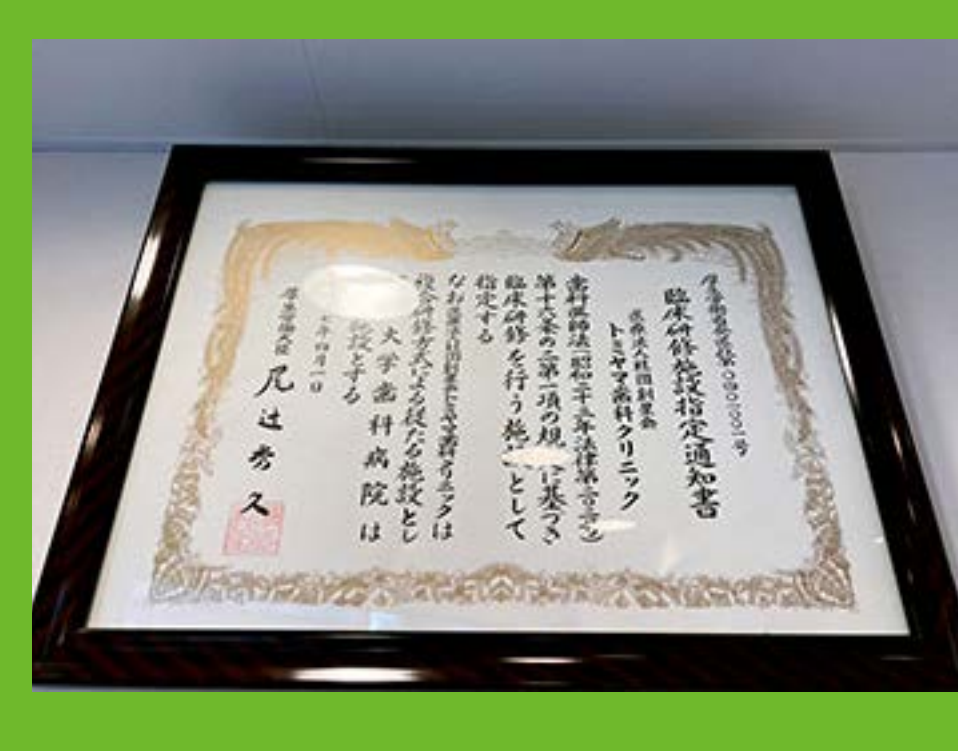 臨床研修施設指定通知書
医療法人社団創業会
トミヤマ歯科クリニック
歯科医師法(昭和二十三年法律第二〇二号)
第十六条の二第一項の規 に基づき
臨床研修を行う施 として
指定する
なお医療法人社団創業会トミヤマ歯科クリニックは
複合研修方式による従たる施設とし
大学歯科病院は
施設とする
年四月一日
厚生労働大臣 尾辻秀久